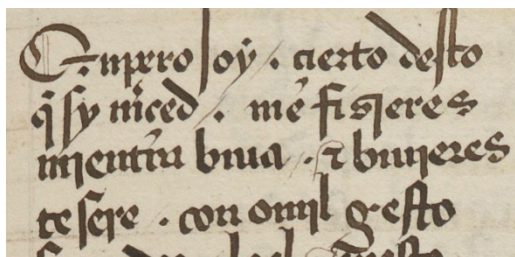 Enpero soy . cierto desto
q̃ sy mr̃ced . me fisjeres
mjentra biua . ⁊ biujeres
te sere . con omjl gesto